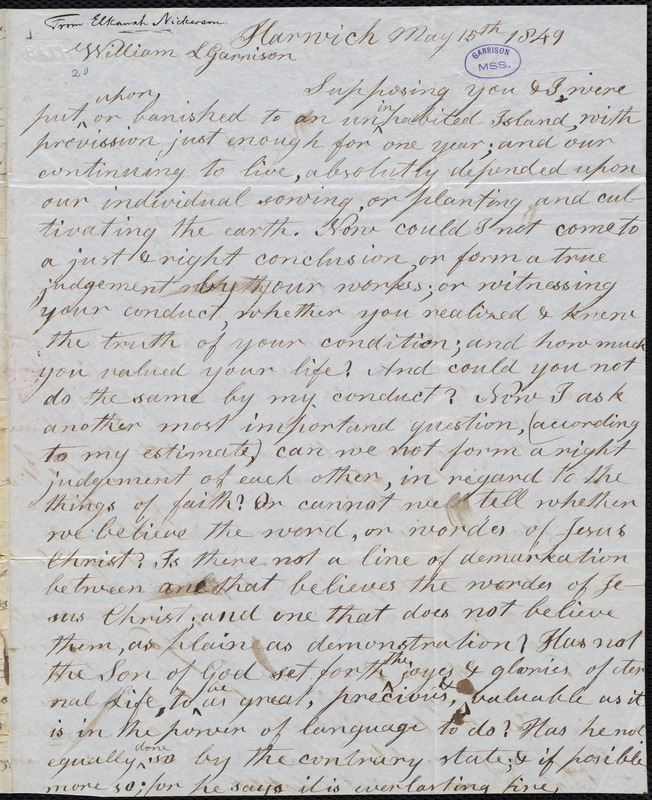 From Elkanah Nickerson.
Harwich May 15th 1849
William L Garrison
GARRISON MSS.
20
Supposing you & I, were
put upon, or banished to an uninhabited Island, with
provission just enough for one year; and our
continuing to live, absolutly depended upon
our individual sowing, or planting and cul-
tivating the earth. Now could I not come to
a just & right conclusion, or form a true
judgement by your workes; or witnessing
your conduct, whether you realized & knew
the truth of your condition; and how much
you valued your life? And could you not
do the same by my conduct? Now I ask
another most importand question, (according
to my estimate,) can we not form a right
judgement of each other, in regard to the
things of faith? Or cannot we tell whether
we believe the word, or wordes of Jesus
Christ? Is there not a line of demarkation
between one that believes the wordes of Je
sus Christ; and one that does not believe
them, as plain as demonstration? Has not
the Son of God set forth the joyes & glories of eter
nal Life, to be as great, precious, & valuable as it
is in the power of language to do? Has he not
equally done so by the contrary state; & if posible
more so; for he says it is everlasting fire,